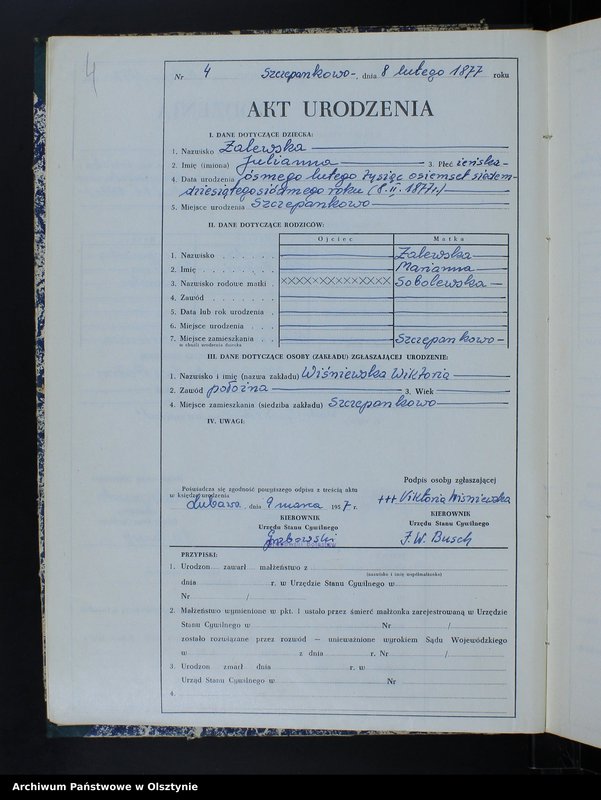 4
Nr 4 Szczepankowo-, dnia 8 lutego 1877 roku
AKT URODZENIA
I. DANE DOTYCZĄCE DZIECKA:
1. Nazwisko Zalewska
2. Imię (imiona) Julianna 3. Płeć żeńska-
4. Data urodzenia ósmego lutego tysiąc osiemset siedem-
dziesiątego siódmego roku (8.II.1877r.)
5. Miejsce urodzenia Szczepankowo
II. DANE DOTYCZĄCE RODZICÓW:
Ojciec Matka
1. Nazwisko Zalewska
2. Imię Marianna
3. Nazwisko rodowe matki xxxxxxxxxxxxxxx Sobolewska
4. Zawód
5. Data lub rok urodzenia
6. Miejsce urodzenia
7. Miejsce zamieszkania Szczepankowo-
w chwili urodzenia dziecka
III. DANE DOTYCZĄCE OSOBY (ZAKŁADU) ZGŁASZAJĄCEJ URODZENIE:
1. Nazwisko i imię (nazwa zakładu) Wiśniewska Wiktoria
2. Zawód położna 3. Wiek
4. Miejsce zamieszkania (siedziba zakładu) Szczepankowo
IV. UWAGI:
Podpis osoby zgłaszającej
Poświadcza się zgodność powyższego odpisu z treścią aktu
w księdze urodzenia
+++ Viktoria Wisniewska
Lubawa, dnia 9 marca 1957 r.
KIEROWNIK
Urzędu Stanu Cywilnego
KIEROWNIK
Urzędu Stanu Cywilnego
Grabowski
J. W. Busch
PRZYPISKI:
1. Urodzon zawarł małżeństwo z
(nazwisko i imię współmałżonka)
dnia r. w Urzędzie Stanu Cywilnego w
Nr /
2. Małżeństwo wymienione w pkt. 1 ustało przez śmierć małżonka zarejestrowaną w Urzędzie
Stanu Cywilnego w Nr /
zostało rozwiązane przez rozwód — unieważnione wyrokiem Sądu Wojewódzkiego
w z dnia r. Nr /
3. Urodzon zmarł dnia r. w
Urząd Stanu Cywilnego w Nr
4.
Archiwum Państwowe w Olsztynie